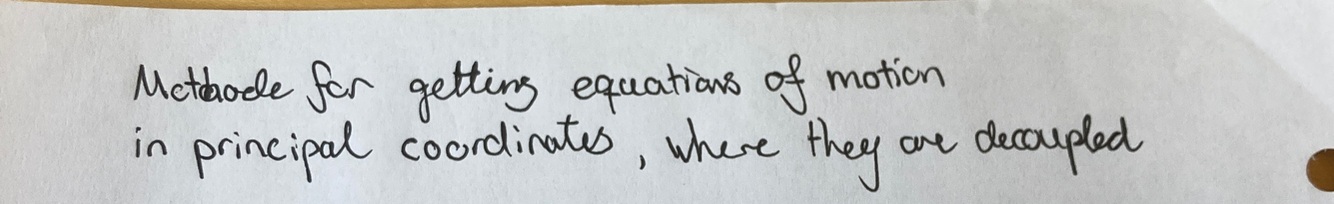 Methode for getting equations of motion
in principal coordinates, where they are decoupled